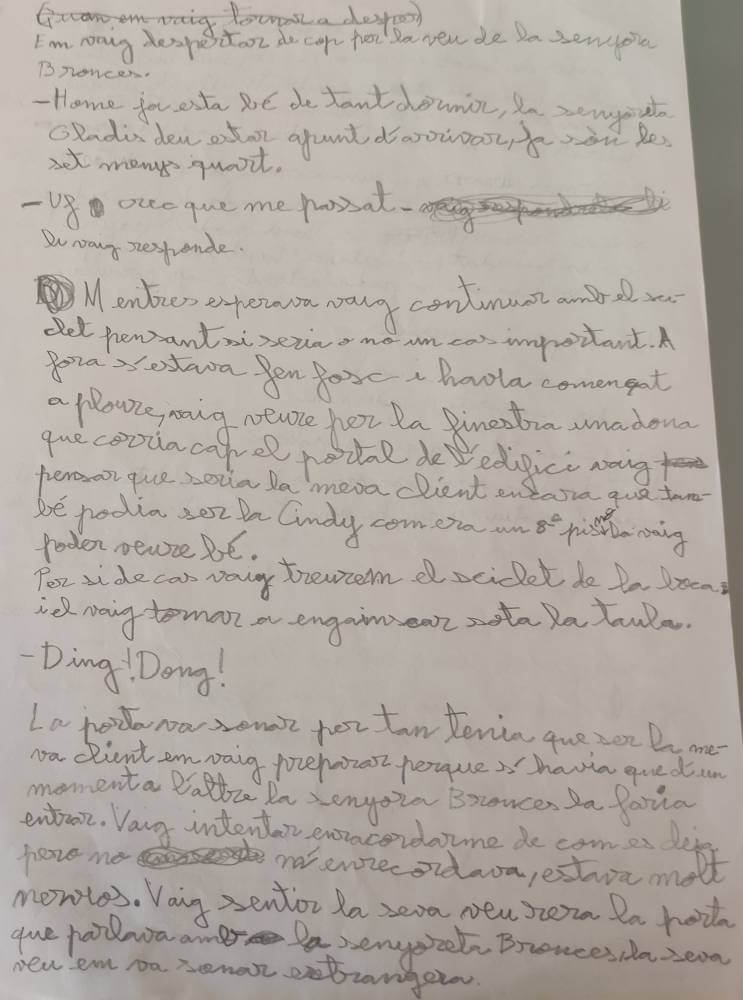 (Quan em vaig tornar a despert)
Em vaig despertar de cop per la veu de la senyora
Bronces.
-Home ja esta bé de tant dormir, la senyoreta
Gladis deu estar apunt d'arrivar, ja sòn les
set menys quart.
-Uf crec que me passat - vaig respondre li
li vaig responde.
Mentres esperava vaig continuar amb el xi-
clet pensant si seria o no un cas important. A
fora s'estava fen fosc i havia començat
a ploure, vaig veure per la finestra una dona
que corria cap el portal de l'edifici vaig
pensar que seria la meva client encara que tam-
bé podia ser la Cindy com era un 8º pis no la vaig
poder veure bé.
Per si de cas vaig treurem el xiclet de la boca
i el vaig tornar a enganxar sota la taula.
-Ding! Dong!
La porta va sonar per tan tenia que ser la me-
va client em vaig preparar perque s'havia que d'un
moment a l'altre la senyora Bronces la faria
entrar. Vaig intentar enracordarme de com es deia
pero no m'enrecordava, estava molt
nervios. Vaig sentir la seva veu rera la porta
que parlava amb la senyoreta Bronces, la seva
veu em va sonar extrangera.